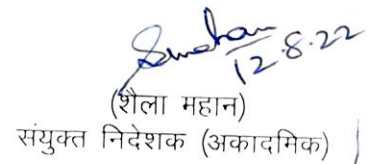 12.8.22
(शैला महान)
संयुक्त निदेशक (अकादमिक)